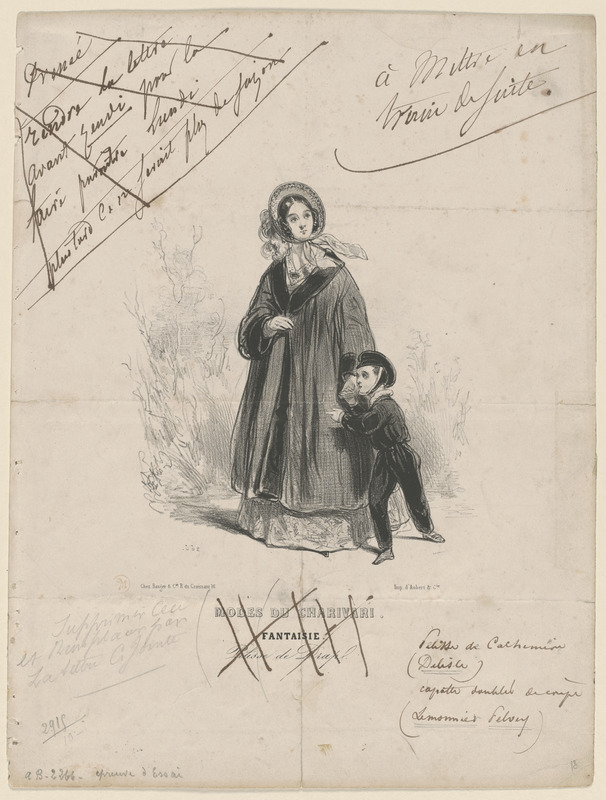 Pressé
rendre la lettre
avant jeudi pour la
faire paraitre lundi
plus tard ce ne serait plus de saison
à Mettre en
train de suite
Chez Bauger & Cie R. du Croissant 16
Imp. d'Aubert & Cie
MODES DU CHARIVARI.
FANTAISIE.
Pelisse de Drap
supprimer ceci
et remplacer par
la lettre ci jointe
Pelisse de Cachemire
(Delisle)
capotte doublée de crêpe
(Lemonnier Pelvey)
2915
AB-2366- épreuve d'Essai
18